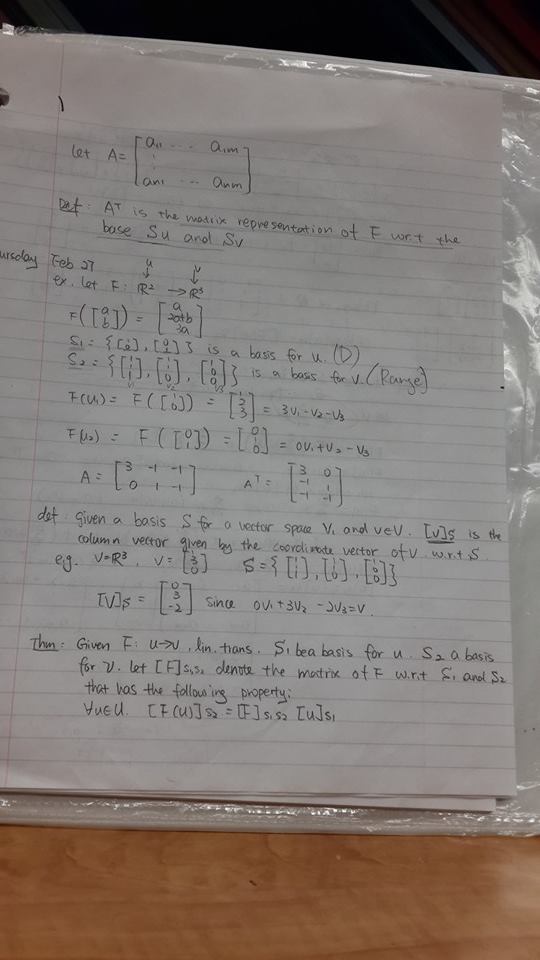 1
let A = [a11 ... a1m
⋮
an1 ... anm]
Def: A^T is the matrix representation of F w.r.t the
base Su and Sv
ursday Feb 27 u v
↓ ↓
ex. let F: ℝ² → ℝ³
F([a b]) = [a 2a+b 3a]
S1 = {[1 0], [0 1]} is a basis for u. (D)
S2 = {[1 1 1], [1 1 0], [1 0 0]} is a basis for V. (Range)
v1 v2 v3
F(u1) = F([1 0]) = [1 2 3] = 3v1 - v2 - v3
F(u2) = F([0 1]) = [0 1 0] = 0v1 + v2 - v3
A = [3 -1 -1 0 1 -1] A^T = [3 0 -1 1 -1 -1]
def: Given a basis S for a vector space V, and v∈V. [V]s is the
column vector given by the coordinate vector of v w.r.t S.
eg. V=ℝ³, V = [1 3 0] S = {[1 1 1], [1 1 0], [1 0 0]}
[V]s = [0 3 -2] since 0v1 + 3v2 - 2v3 = V.
Thm: Given F: u→v, lin. trans. S1 be a basis for u. S2 a basis
for V. let [F]s1s2 denote the matrix of F w.r.t S1 and S2
that has the following property:
∀u∈U. [F(u)]s2 = [F]s1s2 [u]s1